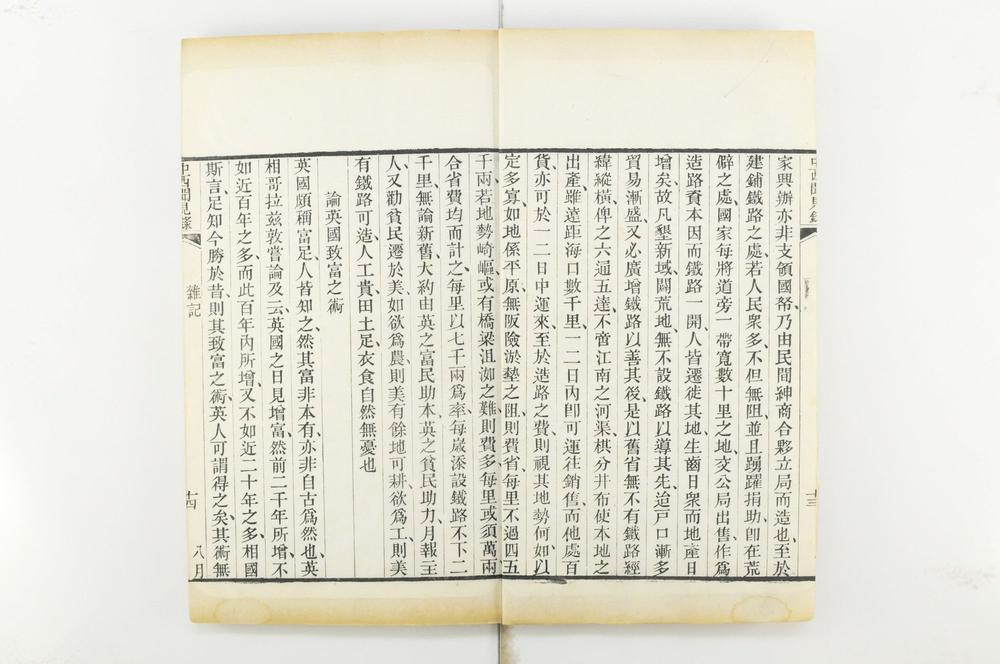 家興辦亦非支領國帑乃由民間紳商合夥立局而造也至於
建鋪鐵路之處若人民衆多不但無阻並且踴躍捐助卽在荒
僻之處國家每將道旁一帶寬數十里之地交公局出售作爲
造路資本因而鐵路一開人皆遷徙其地生齒日衆而地產日
增矣故凡墾新域闢荒地無不設鐵路以導其先迨戸口漸多
貿易漸盛又必廣增鐵路以善其後是以舊省無不有鐵路經
緯縱橫俾之六通五達不啻江南之河渠棋分井布使本地之
出產雖遠距海口數千里一二日內卽可運往銷售而他處百
貨亦可於一二日中運來至於造路之費則視其地勢何如以
定多寡如地係平原無阪險淤墊之阻則費省每里不過四五
千兩若地勢崎嶇或有橋梁沮洳之難則費多每里或須萬兩
合省費均而計之每里以七千兩爲率每嵗添設鐵路不下二
千里無論新舊大約由英之富民助本英之貧民助力月報主
人又勸貧民遷於美如欲爲農則美有餘地可耕欲爲工則美
有鐵路可造人工貴田土足衣食自然無憂也
論英國致富之術
英國頗稱富足人皆知之然其富非本有亦非自古爲然也英
相哥拉兹敦嘗論及云英國之日見增富然前二千年所增不
如近百年之多而此百年內所增又不如近二十年之多相國
斯言足知今勝於昔則其致富之術英人可謂得之矣其術無
中西聞見錄
雜記
十四
八月
中西聞見錄
十三